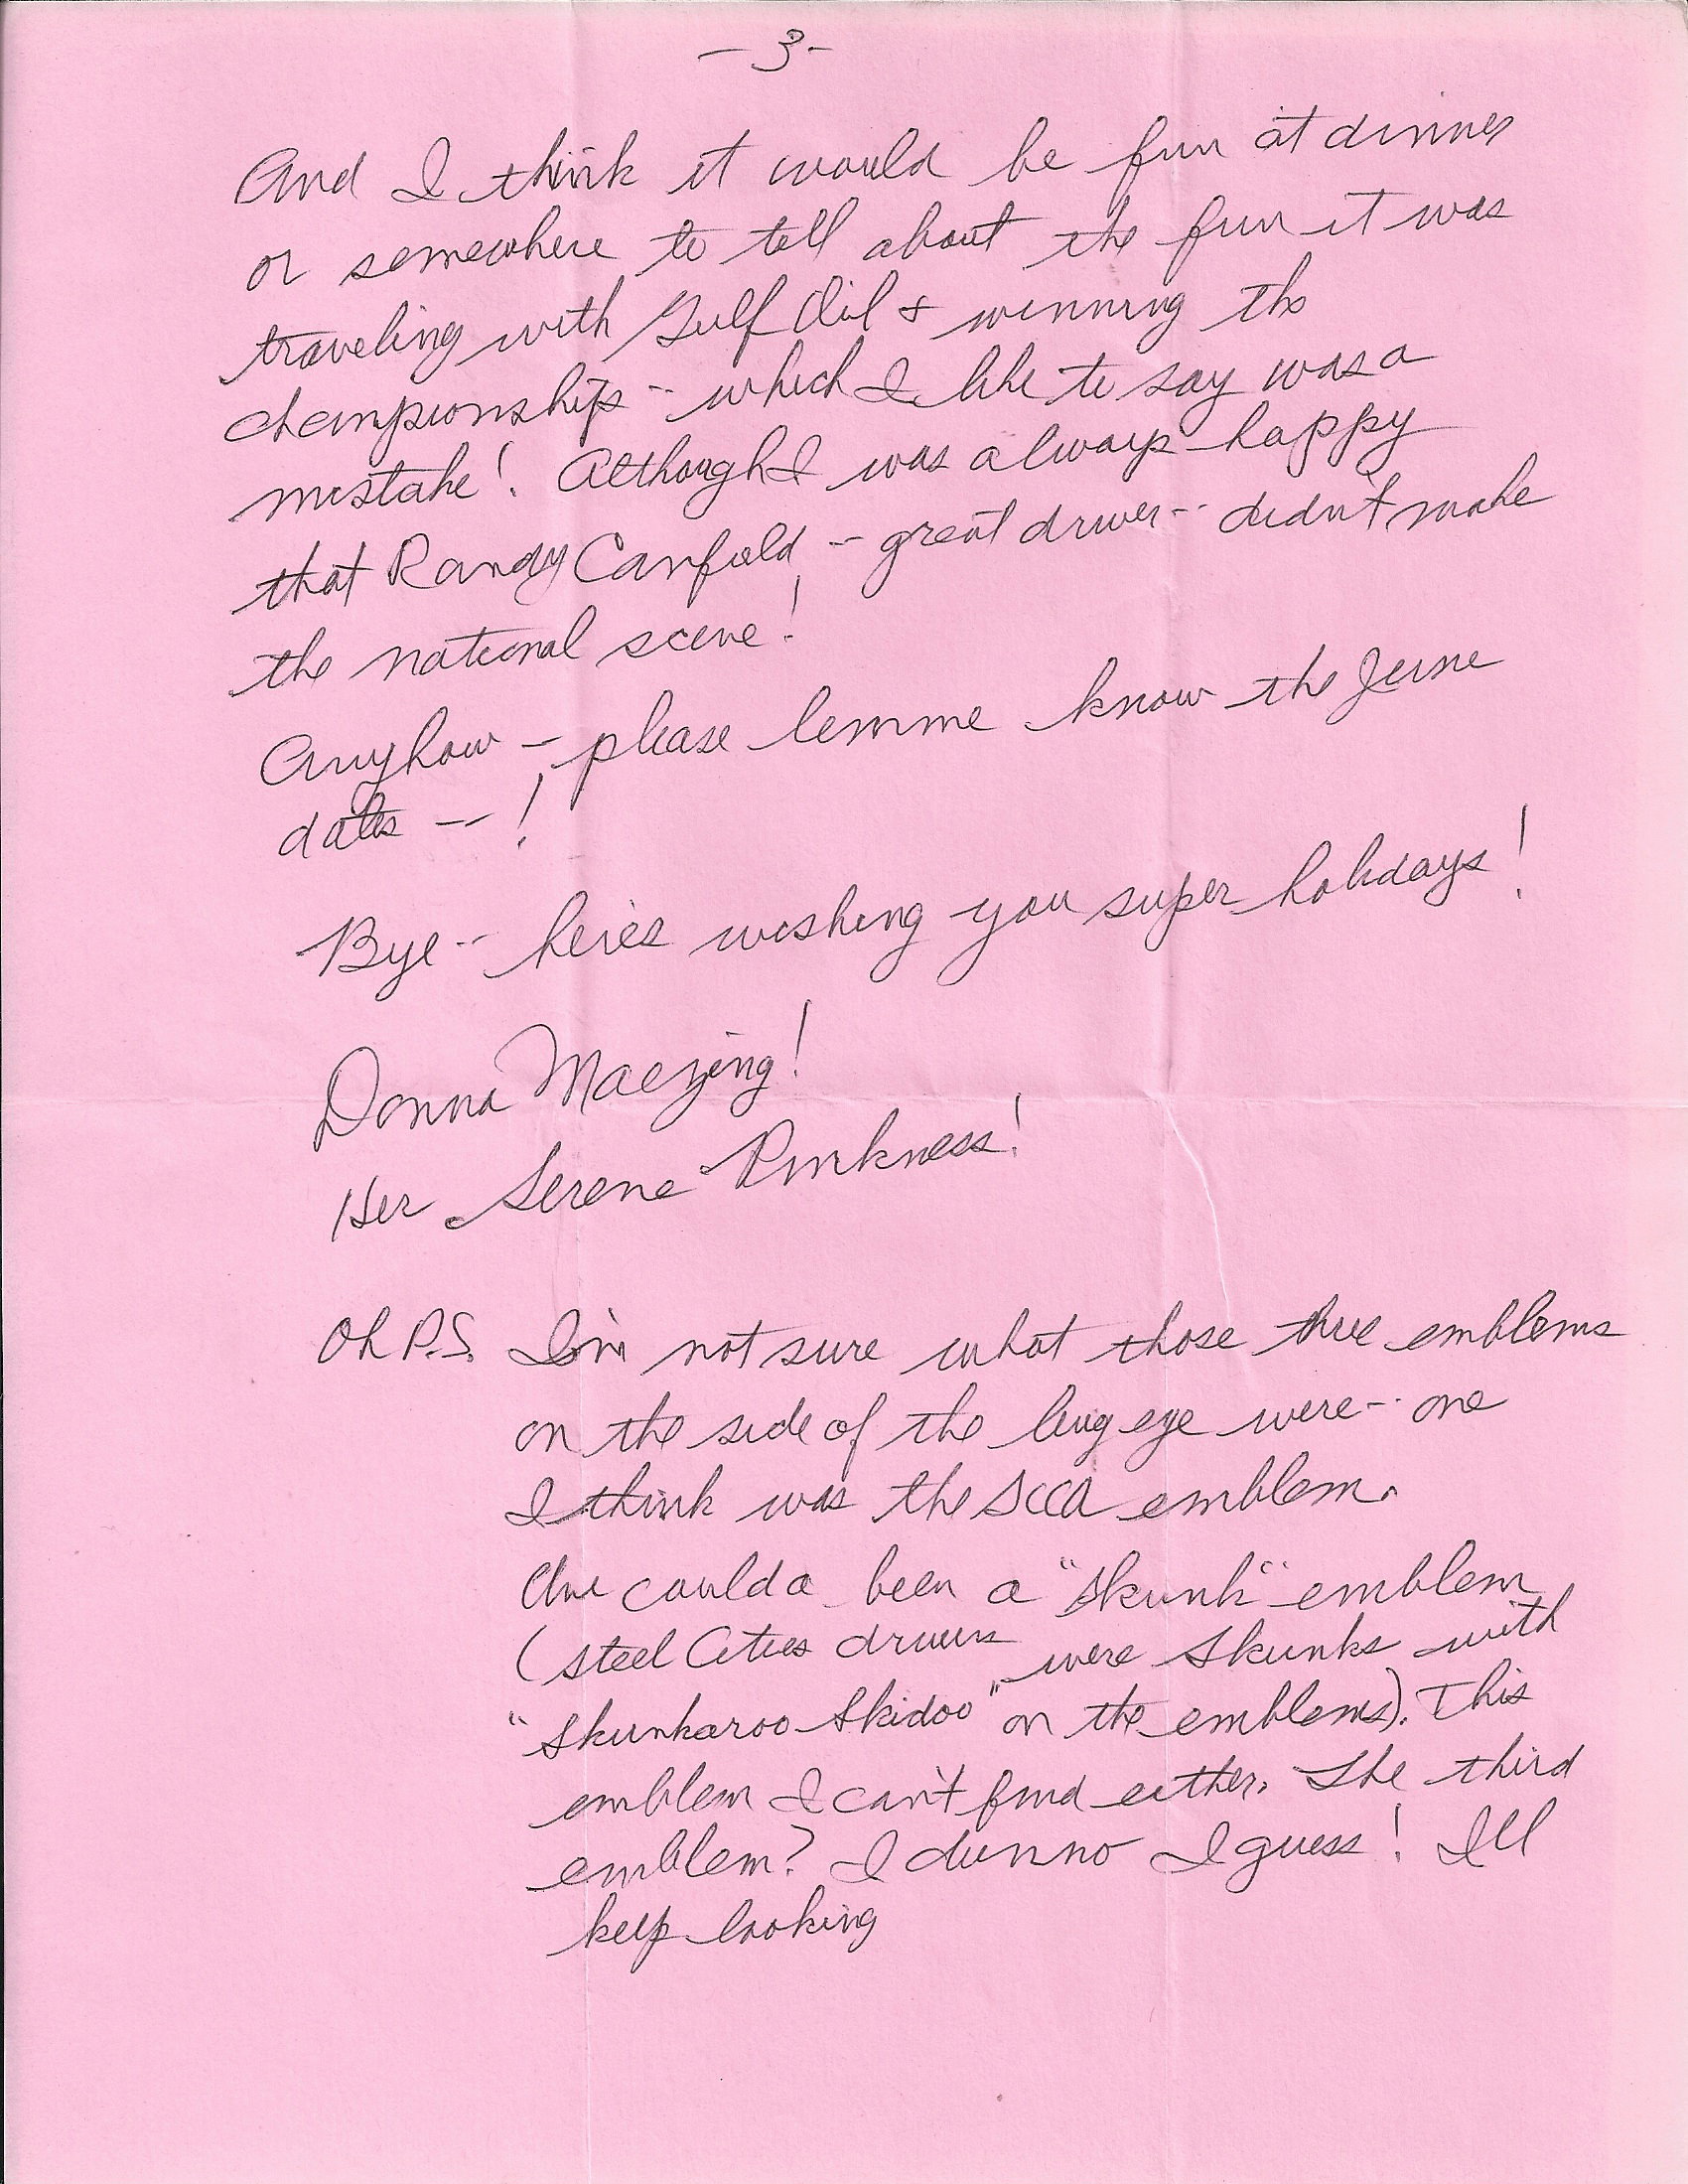 -3-
And I think it would be fun at dinner
or somewhere to tell about the fun it was
traveling with Gulf Oil & winning the
championships -- which I like to say was a
mistake! Although I was always happy
that Randy Canfield -- great driver -- didn't make
the national scene!
Anyhow - please lemme know the June
dates --!
Bye -- here's wishing you super holidays!
Donna Maezing!
Her Serene Pinkness!
Oh P.S. I'm not sure what those three emblems
on the side of the bug eye were -- one
I think was the SCCA emblem.
One coulda been a "skunk" emblem
(Steel Cities drivers were skunks with
"Skunkaroo Skidoo" on the emblems). This
emblem I can't find either. The third
emblem? I dunno I guess! I'll
keep looking